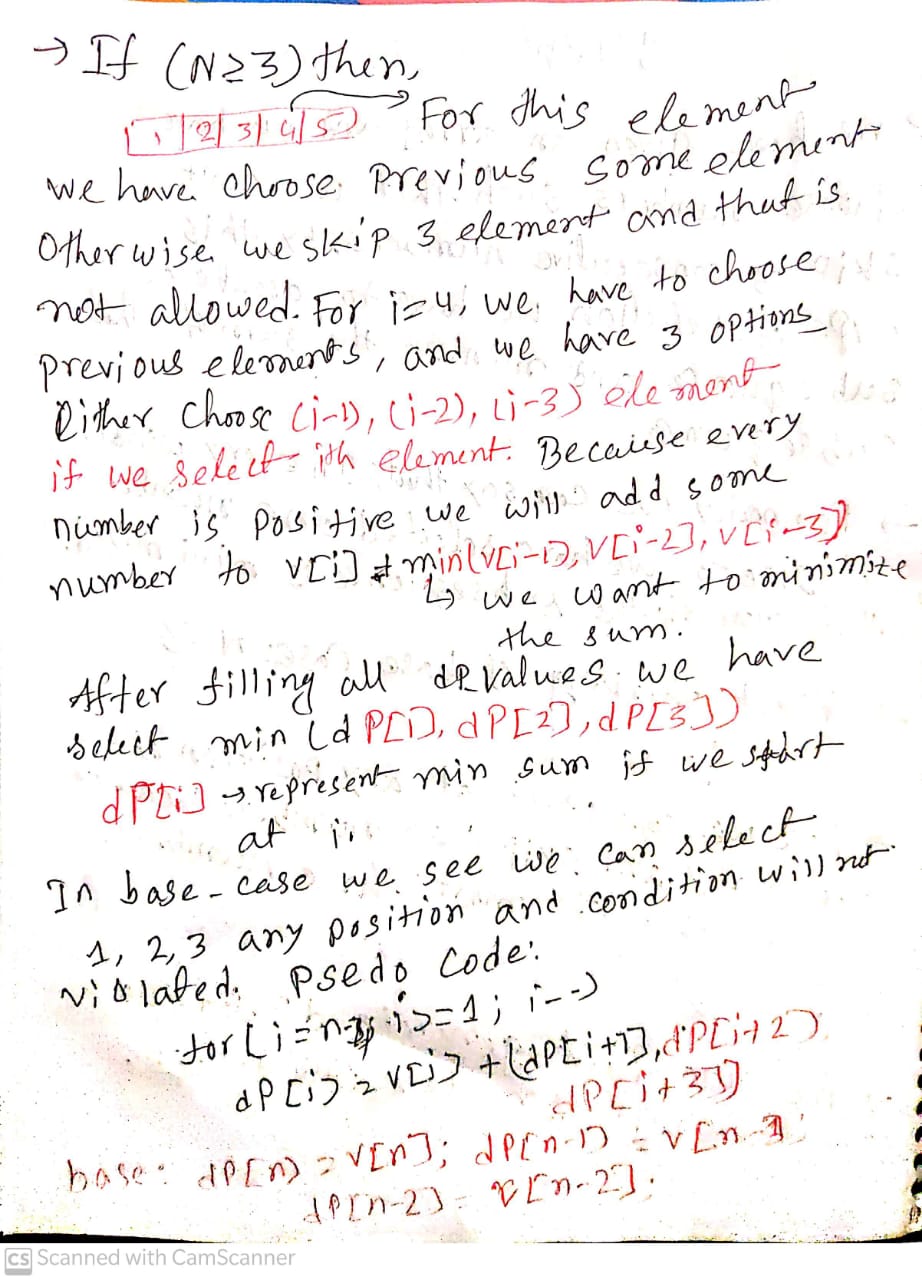 → If (N≥3) then,
1 | 2 | 3 | 4 | 5 For this element
we have choose Previous some element
Otherwise we skip 3 element and that is
not allowed. For i=4, we have to choose
previous elements, and we have 3 options
Either choose (i-1), (i-2), (i-3) element
if we select ith element. Because every
number is positive we will add some
number to v[i] + min(v[i-1], v[i-2], v[i-3])
↳ we want to minimize
the sum.
After filling all dp values we have
select min (dP[1], dP[2], dP[3])
dP[i] → represent min sum if we start
at i.
In base-case we see we can select
1, 2, 3 any position and condition will not
violated. Psedo Code:
for (i=n-3; i>=1; i--)
dP[i] = v[i] + (dP[i+1], dP[i+2]
dP[i+3])
base: dP[n] = v[n]; dP[n-1] = v[n-1]
dP[n-2] = v[n-2].
CS Scanned with CamScanner